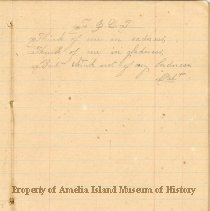 To
Think of me in sadness,
Think of me in gladness,
But think not of my badness
Property of Amelia Island Museum of History